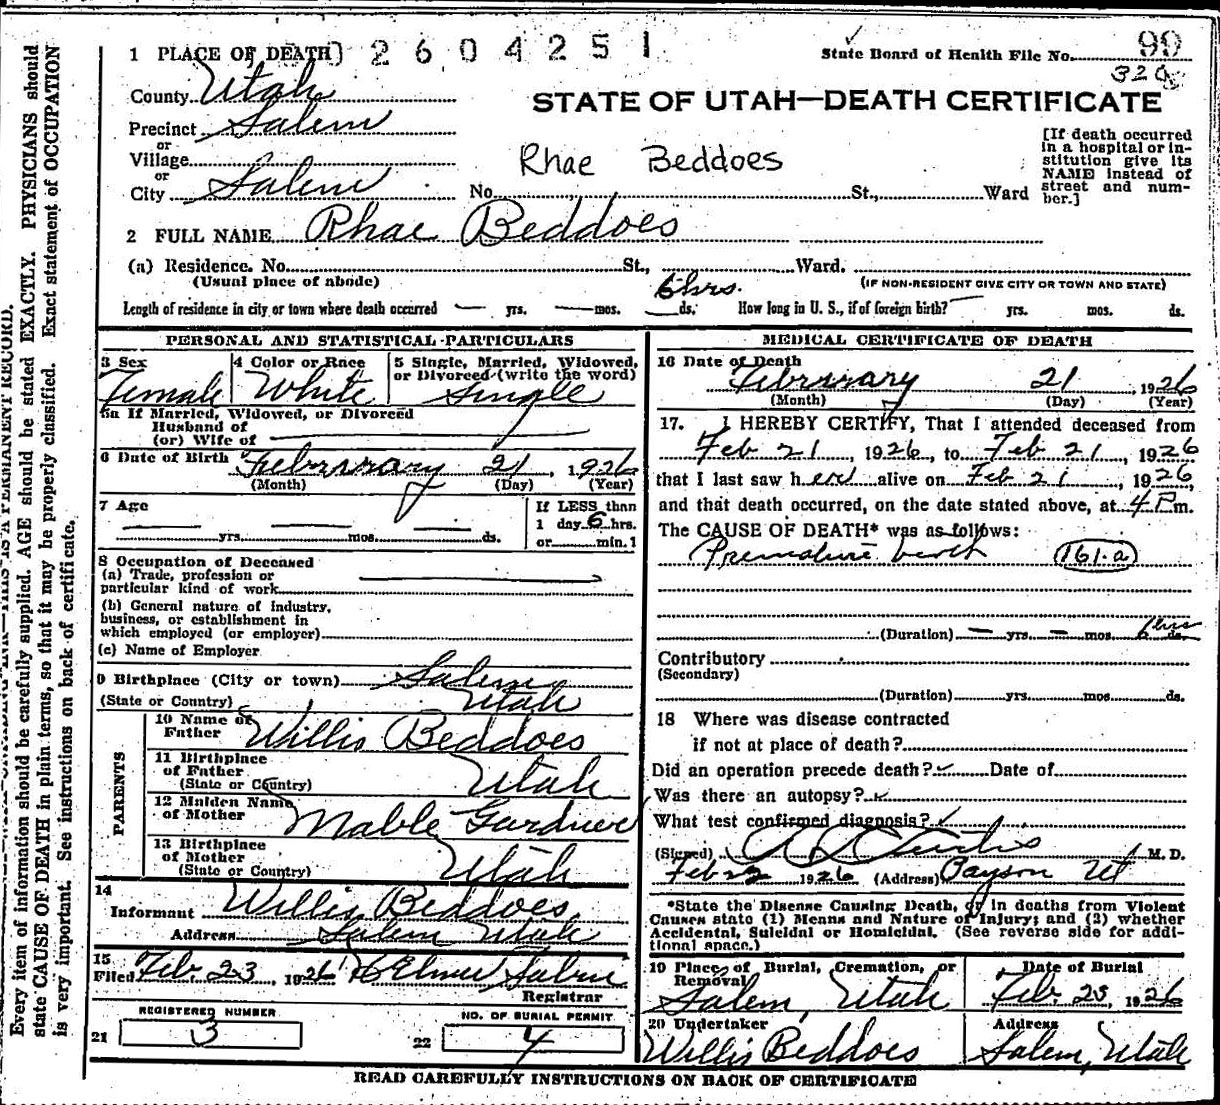 1 PLACE OF DEATH 2604251
State Board of Health File No. 99
County Utah
STATE OF UTAH—DEATH CERTIFICATE
Precinct Salem
or
Village
or
City Salem No. St., Ward
Rhae Beddoes
[If death occurred in a hospital or institution give its NAME instead of street and number.]
2 FULL NAME Rhae Beddoes
(a) Residence. No. St., Ward.
(Usual place of abode) (IF NON-RESIDENT GIVE CITY OR TOWN AND STATE)
Length of residence in city or town where death occurred — yrs. — mos. 6 hrs. ds. How long in U. S., if of foreign birth? — yrs. mos. ds.
PERSONAL AND STATISTICAL PARTICULARS
3 Sex Female
4 Color or Race White
5 Single, Married, Widowed, or Divorced (write the word) Single
5a If Married, Widowed, or Divorced
Husband of
(or) Wife of
6 Date of Birth Februrary 21, 1926
(Month) (Day) (Year)
7 Age — yrs. — mos. — ds.
If LESS than
1 day 6 hrs.
or min.
8 Occupation of Deceased
(a) Trade, profession or
particular kind of work
(b) General nature of industry,
business, or establishment in
which employed (or employer)
(c) Name of Employer
9 Birthplace (City or town) Salem
(State or Country) Utah
PARENTS
10 Name of Father Willis Beddoes
11 Birthplace of Father Utah
(State or Country)
12 Maiden Name of Mother Mable Gardner
13 Birthplace of Mother Utah
(State or Country)
14
Informant Willis Beddoes
Address Salem Utah
15
Filed Feb. 23, 1926 Elmer
Registrar
REGISTERED NUMBER
21 3
NO. OF BURIAL PERMIT
22 4
MEDICAL CERTIFICATE OF DEATH
16 Date of Death
Februrary 21, 1926
(Month) (Day) (Year)
17. I HEREBY CERTIFY, That I attended deceased from
Feb 21, 1926, to Feb 21, 1926
that I last saw her alive on Feb 21, 1926,
and that death occurred, on the date stated above, at 4 P.m.
The CAUSE OF DEATH* was as follows:
Premature birth 161.a
(Duration) — yrs. — mos. 6 hrs ds.
Contributory
(Secondary)
(Duration) yrs. mos. ds.
18 Where was disease contracted
if not at place of death?
Did an operation precede death? Date of
Was there an autopsy?
What test confirmed diagnosis?
(Signed) Curtis M. D.
Feb 1926 (Address) Payson Ut
*State the Disease Causing Death, or in deaths from Violent
Causes state (1) Means and Nature of Injury; and (2) whether
Accidental, Suicidal or Homicidal. (See reverse side for addi-
tional space.)
19 Place of Burial, Cremation, or Removal
Salem, Utah
Date of Burial
Feb. 23, 1926
20 Undertaker
Willis Beddoes
Address
Salem, Utah
READ CAREFULLY INSTRUCTIONS ON BACK OF CERTIFICATE
Every item of information should be carefully supplied. AGE should be stated EXACTLY. PHYSICIANS should
state CAUSE OF DEATH in plain terms, so that it may be properly classified. Exact statement of OCCUPATION
is very important. See instructions on back of certificate.